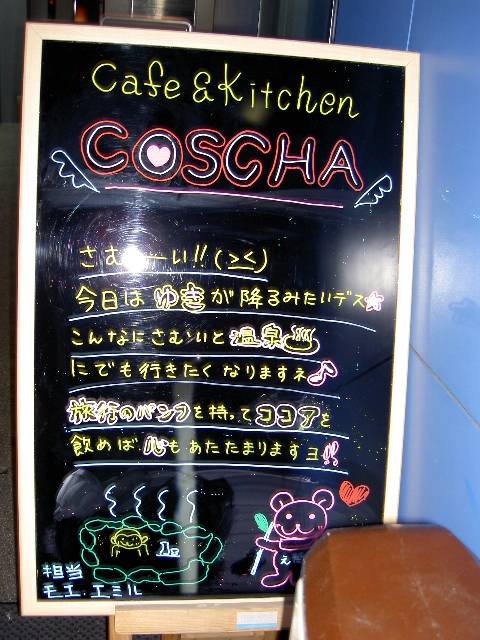 Cafe & Kitchen
COSCHA
さむーーい!! (>く)
今日は ゆきが 降るみたいデス
こんなにさむいと 温泉♨
にでも 行きたく なりますネ♪
旅行のパンフを持って ココアを
飲めば 心も あたたまりますヨ!!
担当
モエ エミル